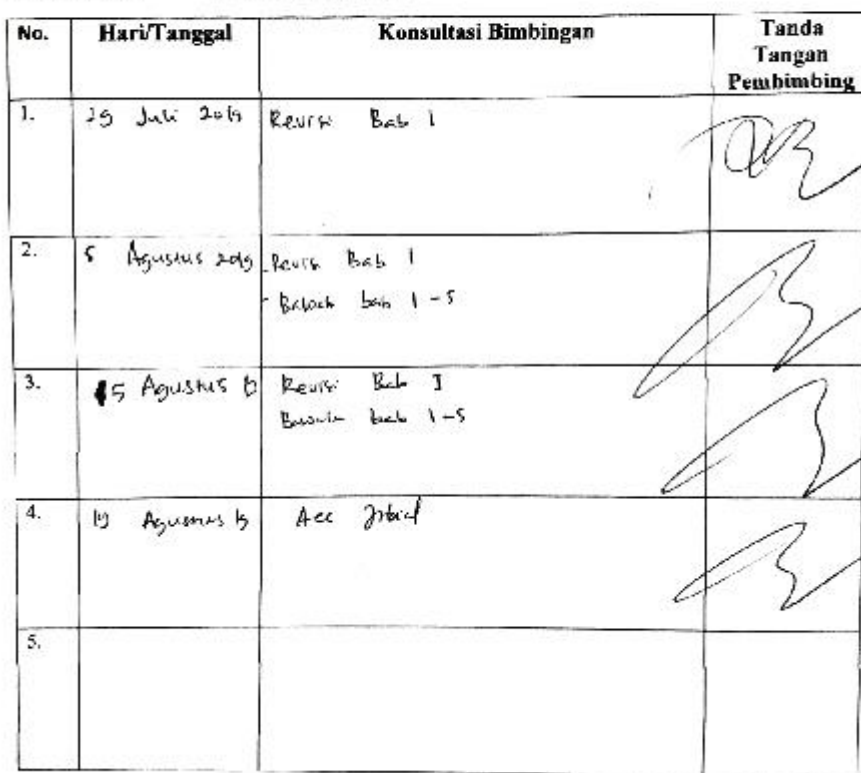 No. Hari/Tanggal Konsultasi Bimbingan Tanda
Tangan
Pembimbing
1. 29 Juli 2019 Revisi Bab 1
2. 5 Agustus 2019 - Revisi Bab 1
- bab 1-5
3. 15 Agustus 19 Revisi Bab I
bab 1-5
4. 19 Agustus 19 Acc
5.